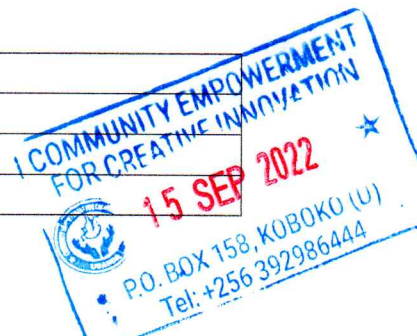 I COMMUNITY EMPOWERMENT
FOR CREATIVE INNOVATION
15 SEP 2022
P.O. BOX 158, KOBOKO (U)
Tel: +256 392986444